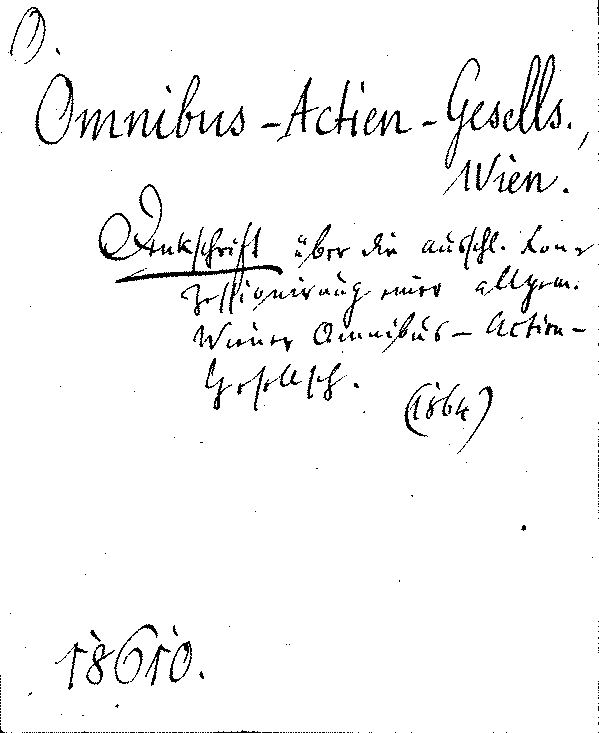 O.
Omnibus-Actien-Gesells.,
Wien.
Denkschrift über die ausschl. Kon-
zessionirung einer allgem.
Wiener Omnibus-Action-
Gesellsch.
(1864)
18610.